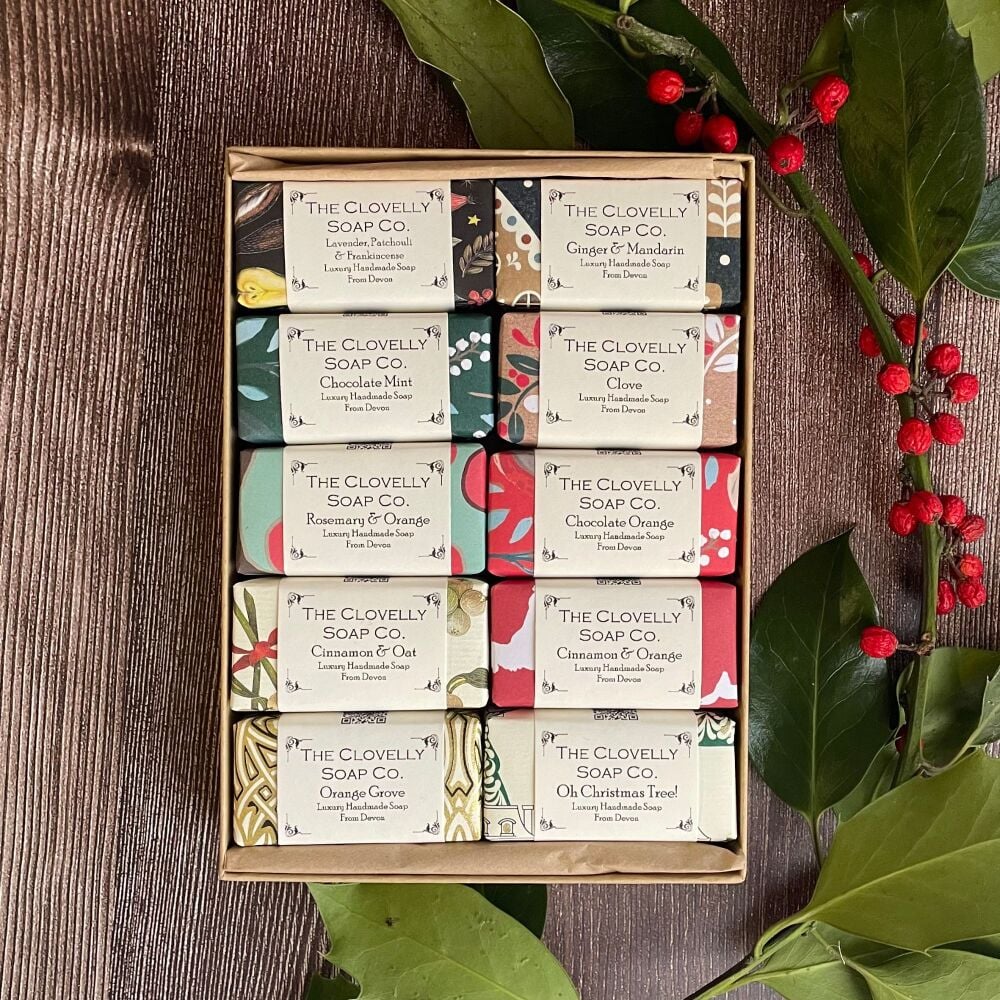 THE CLOVELLY
SOAP CO.
Lavender, Patchouli
& Frankincense
Luxury Handmade Soap
From Devon
THE CLOVELLY
SOAP CO.
Ginger & Mandarin
Luxury Handmade Soap
From Devon
THE CLOVELLY
SOAP CO.
Chocolate Mint
Luxury Handmade Soap
From Devon
THE CLOVELLY
SOAP CO.
Clove
Luxury Handmade Soap
From Devon
THE CLOVELLY
SOAP CO.
Rosemary & Orange
Luxury Handmade Soap
From Devon
THE CLOVELLY
SOAP CO.
Chocolate Orange
Luxury Handmade Soap
From Devon
THE CLOVELLY
SOAP CO.
Cinnamon & Oat
Luxury Handmade Soap
From Devon
THE CLOVELLY
SOAP CO.
Cinnamon & Orange
Luxury Handmade Soap
From Devon
THE CLOVELLY
SOAP CO.
Orange Grove
Luxury Handmade Soap
From Devon
THE CLOVELLY
SOAP CO.
Oh Christmas Tree!
Luxury Handmade Soap
From Devon